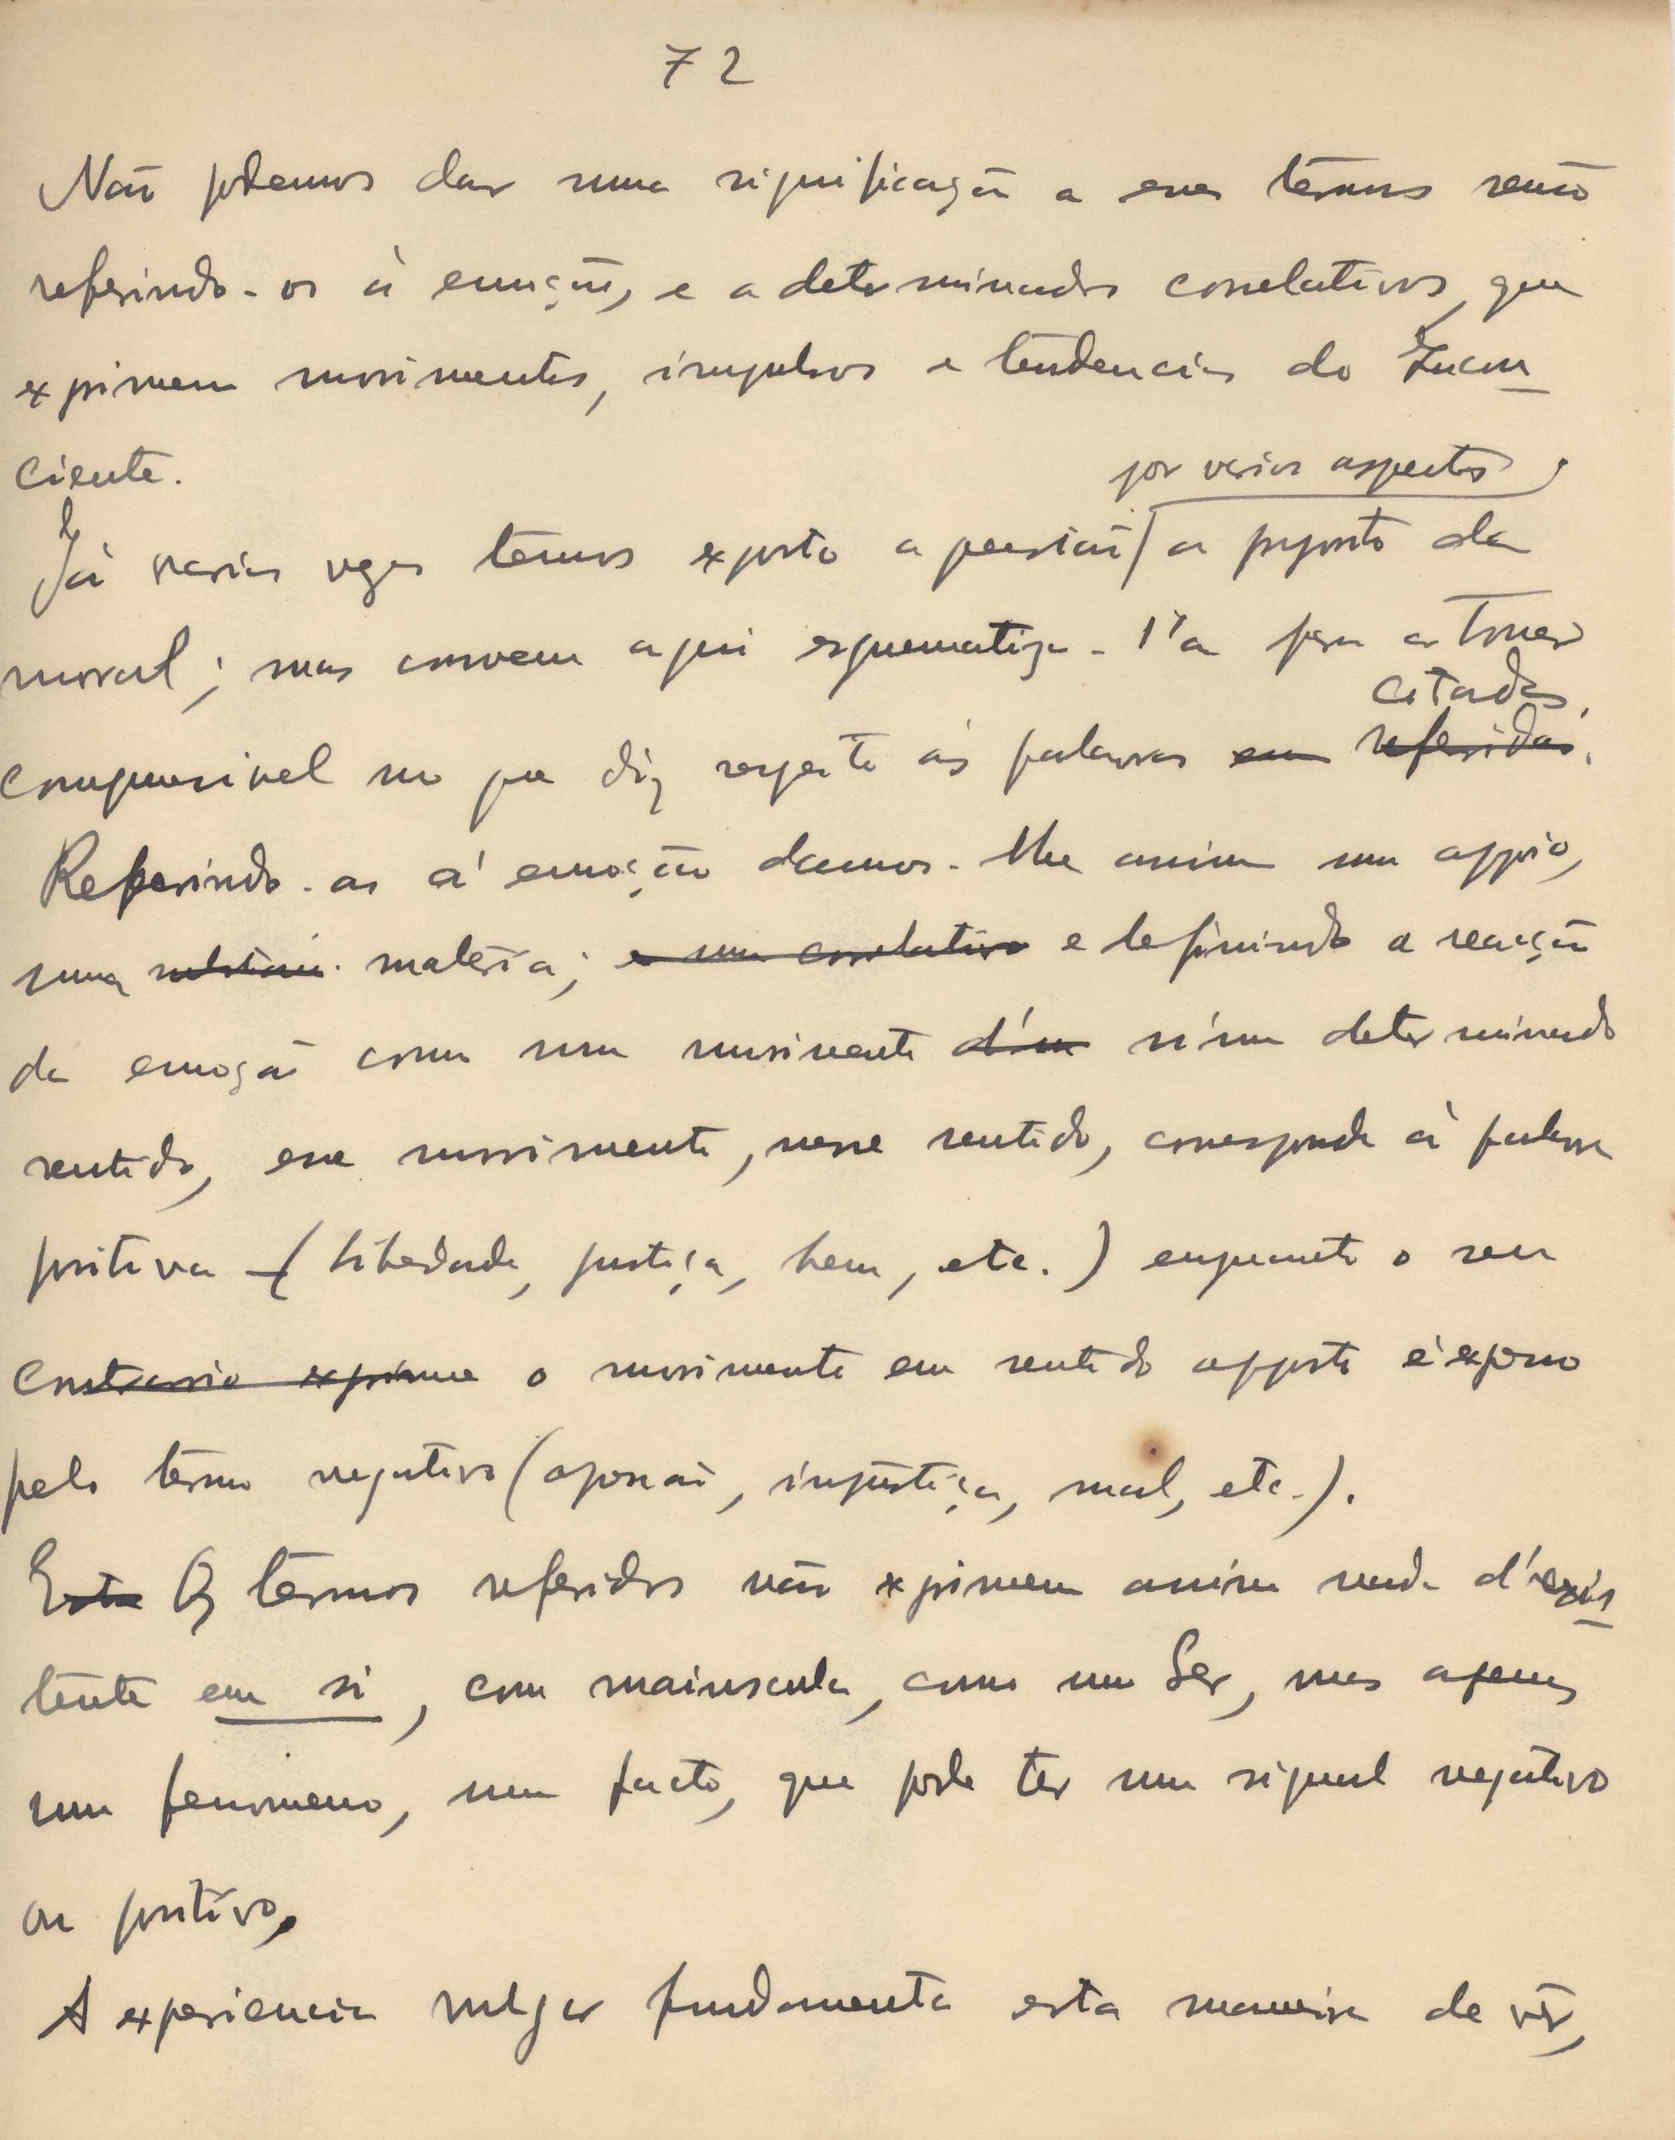 72
Não podemos dar uma significação a esses têrmos senão
referindo-os á emoção, e a determinados correlativos, que
exprimem movimentos, impulsos e tendencias do Incon
ciente.
por varios aspectos
Já varias vezes temos exposto a questão a proposito da
moral; mas convem aqui esquematiza-l'a para a tornar
citadas,
comprensivel no que diz respeito ás palavras em referidas.
Referindo-as á emoção damos-lhe assim um appoio,
uma materia; e um correlativo e definindo a reacção
da emoção como um movimento d'um n'um determinado
sentido, esse movimento, nesse sentido, corresponde á palavra
positiva (liberdade, justiça, bem, etc.) enquanto o seu
contrario exprime o movimento em sentido opposto é expresso
pelo têrmo negativo (opressão, injustiça, mal, etc.).
Este Os têrmos referidos não exprimem assim nada d'exis
tente em si, com maiuscula, como um Ser, mas apenas
um fenomeno, um facto, que pode ter um signal negativo
ou positivo.
A experiencia vulgar fundamenta esta maneira de vêr,